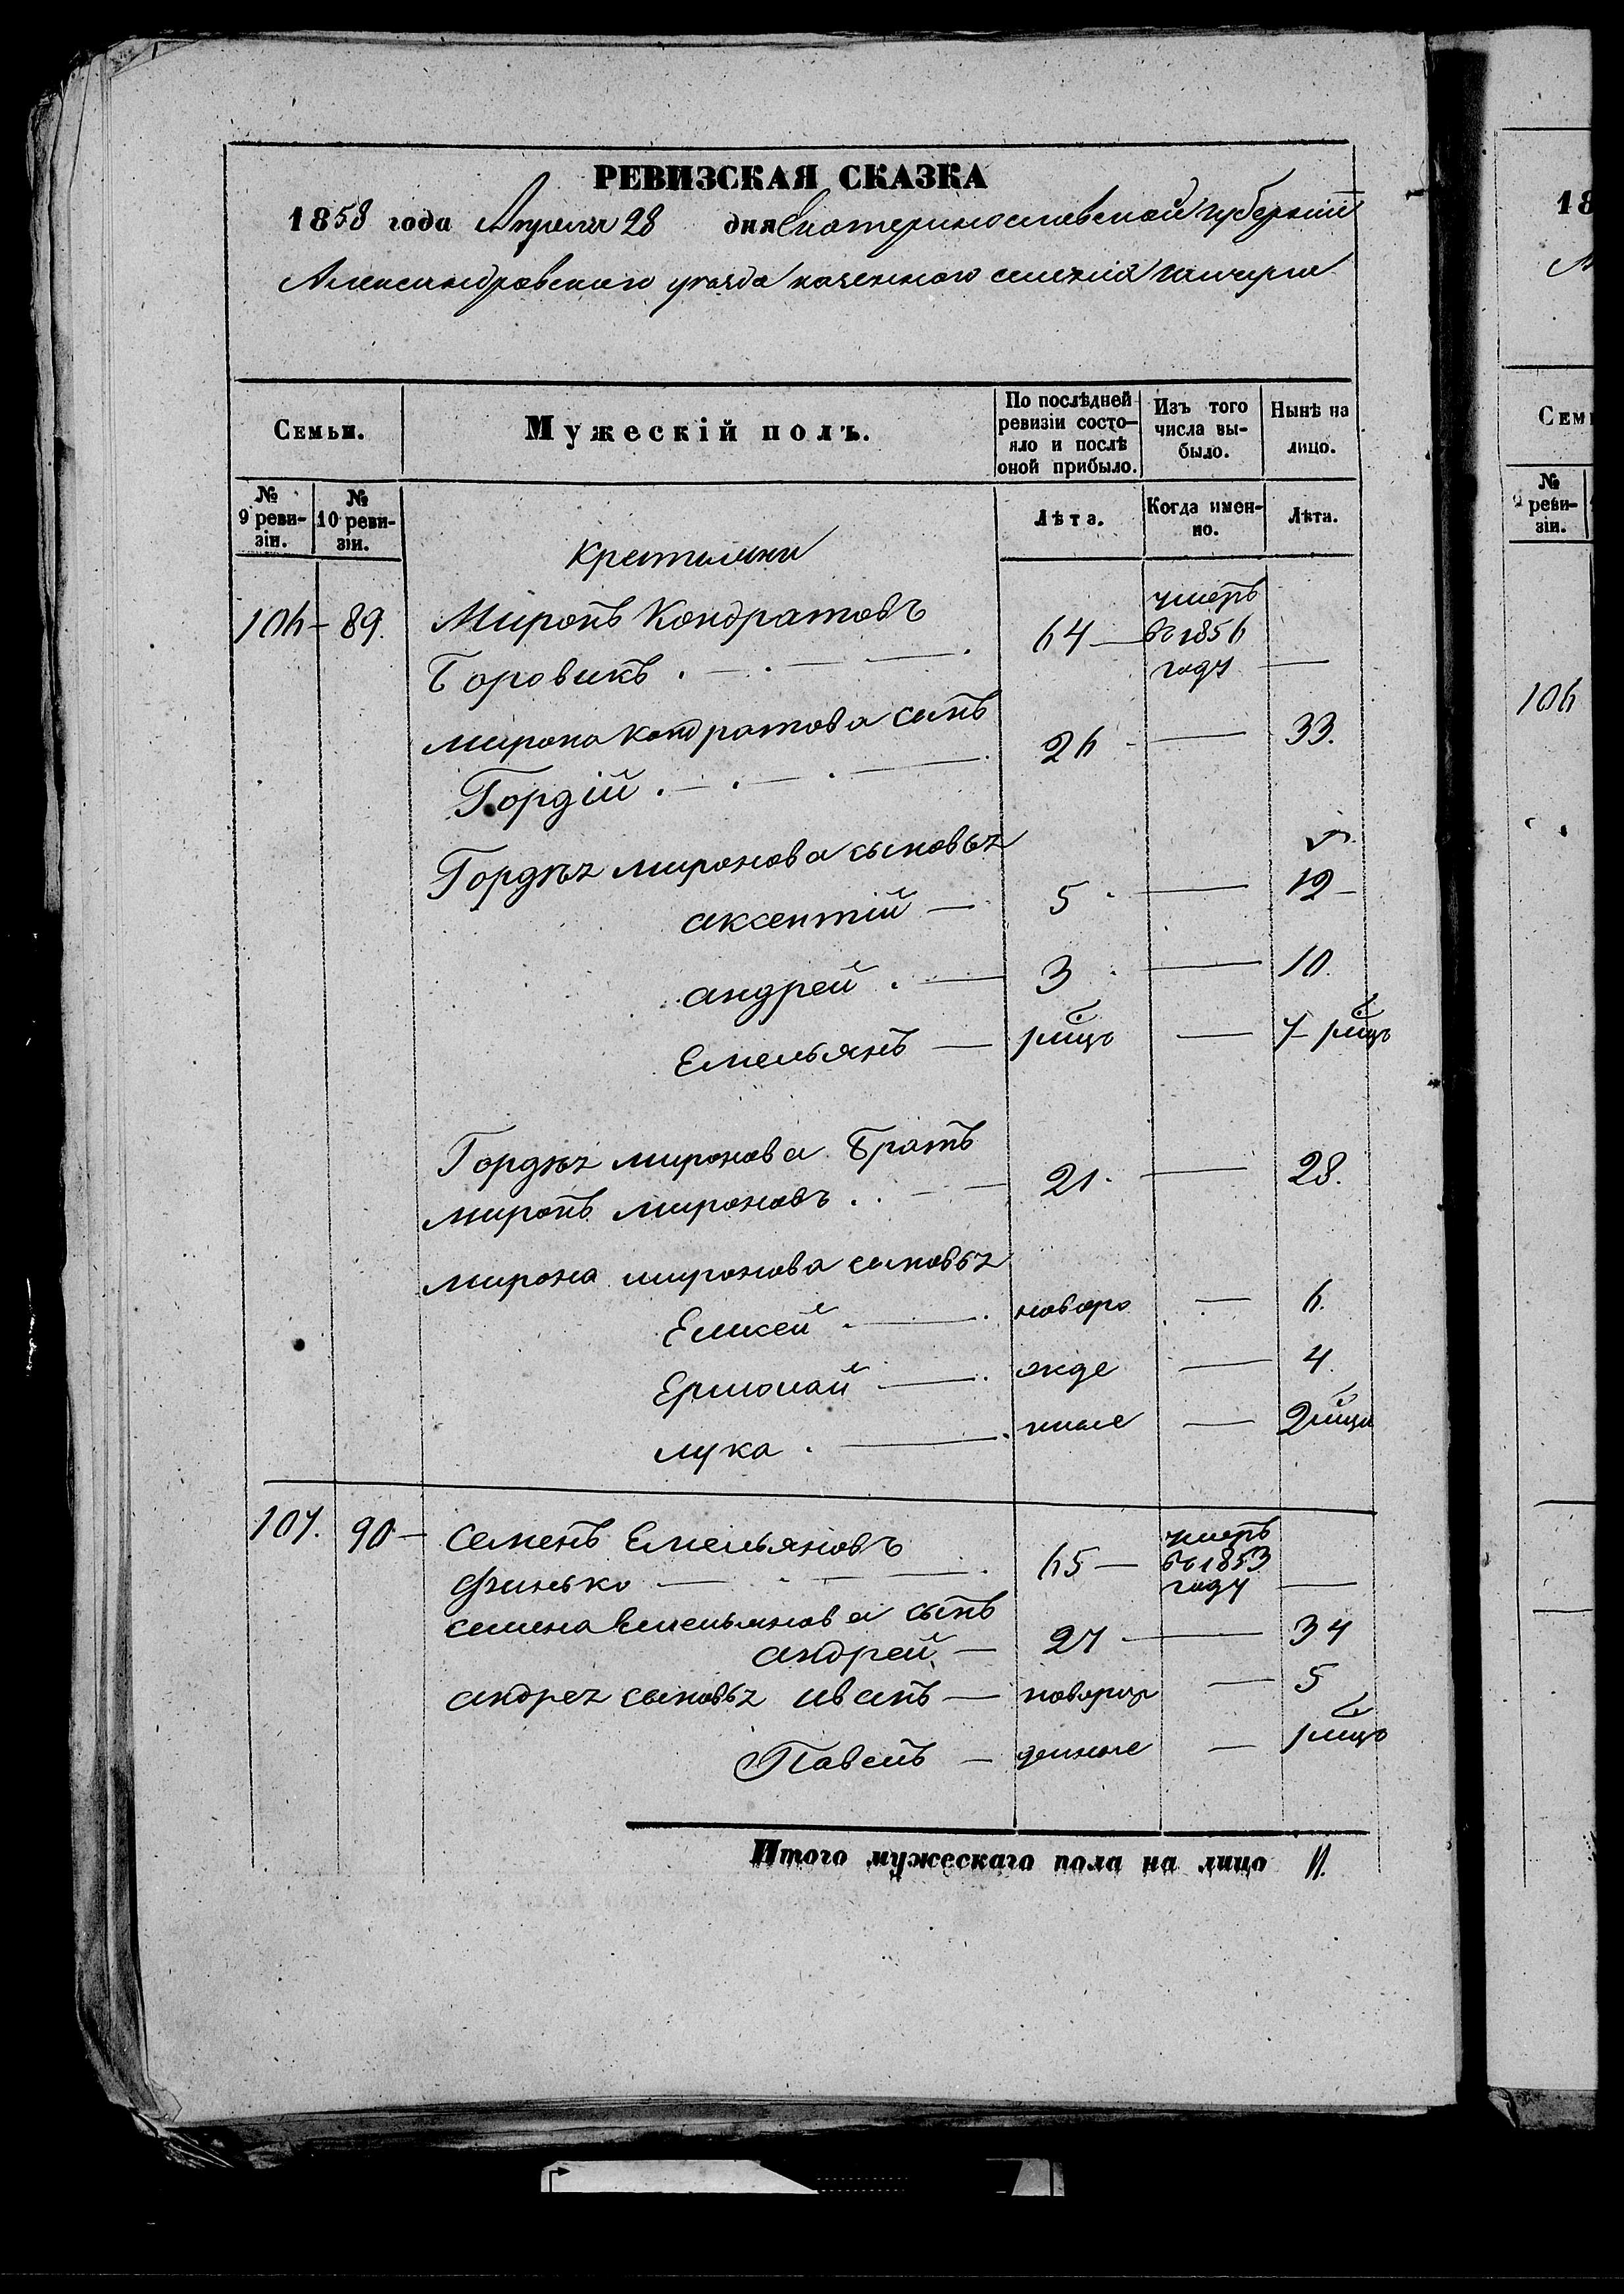 РЕВИЗСКАЯ СКАЗКА
1858 года Апреля 28 дня Екатеринославской губернии
Александровского уезда казенного селения
Семьи. Мужескій полъ. По послѣдней ревизіи состояло и послѣ оной прибыло. Изъ того числа выбыло. Нынѣ на лицо.
№ 9 ревизіи. № 10 ревизіи. Лѣта. Когда именно. Лѣта.
Крестьяне
106 — 89. Миронъ Кондратовъ
Боровикъ . — . — 64 — умеръ въ 1856 году —
Мирона Кондратова сынъ
Гордій . — . — . — 26 — 33.
Гордѣя Миронова сыновья
Аксентій — 5 — 12 —
Андрей . — 3 — 10.
Емельянъ — 1 мѣцъ — 7 — 1 мѣцъ
Гордѣя Миронова братъ
Миронъ Мироновъ . . — 21. — 28.
Мирона Миронова сыновья
Елисей . — . новоро — 6.
Ермолай — . жде — 4.
Лука . — . нные — 2 мѣца
107. 90 — Семенъ Емельяновъ
Финько — 65 — умеръ въ 1853 году —
Семена Емельянова сынъ
Андрей — 27 — 34
Андрея сыновья Иванъ — новорож — 5
Павелъ — денные — 1 мѣцъ
Итого мужескаго пола на лицо 11.
18
Семь
№ 9 ревизіи.
106